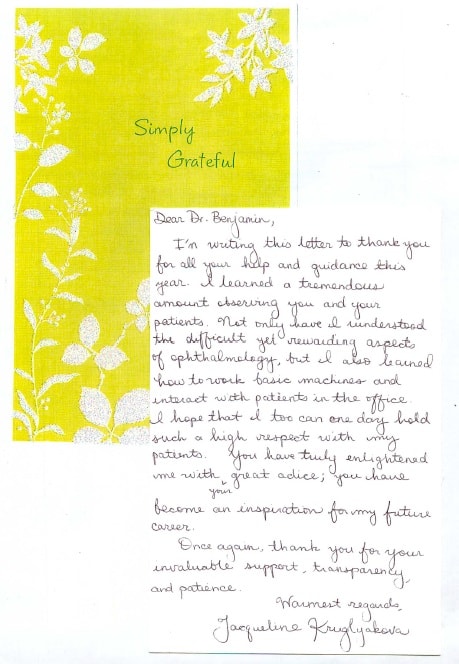 Simply
Grateful
Dear Dr. Benjamin,
I'm writing this letter to thank you
for all your help and guidance this
year. I learned a tremendous
amount observing you and your
patients. Not only have I understood
the difficult yet rewarding aspects
of ophthalmology, but I also learned
how to work basic machines and
interact with patients in the office.
I hope that I too can one day hold
such a high respect with my
patients. You have truly enlightened
me with your great adice; you have
become an inspiration for my future
career.
Once again, thank you for your
invaluable support, transparency,
and patience.
Warmest regards,
Jacqueline Kruglyakova